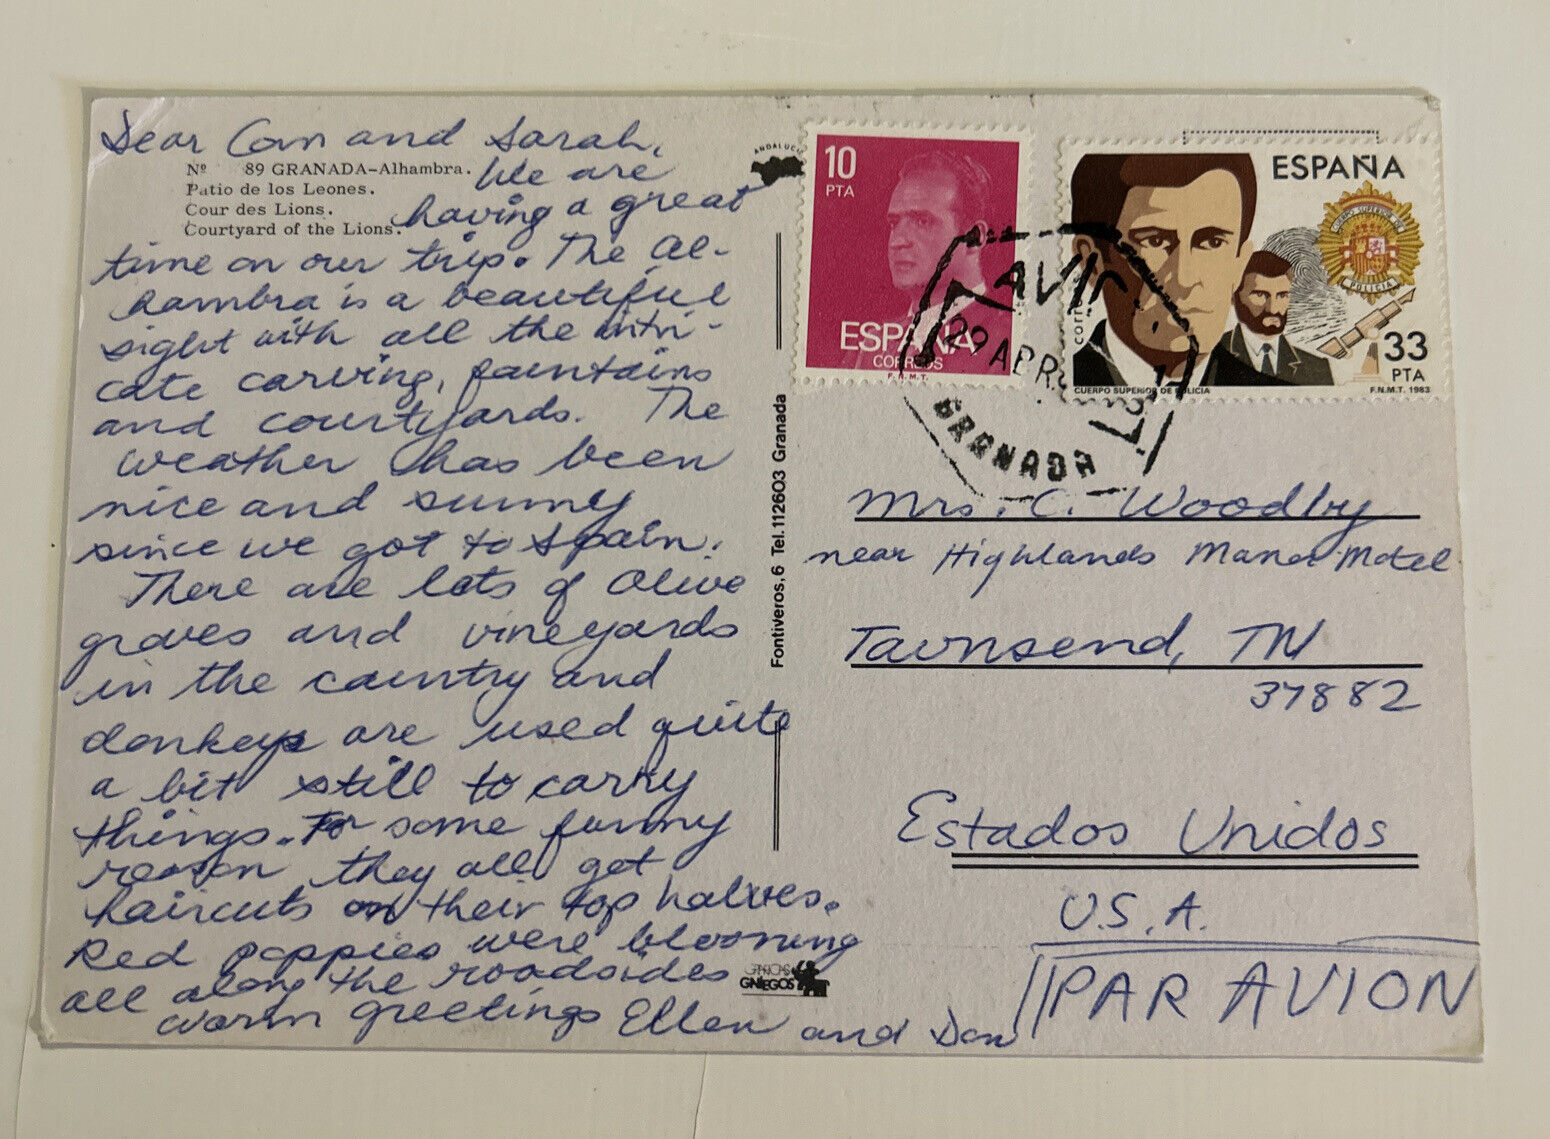 Dear Corn and Sarah,
Nº 89 GRANADA-Alhambra.
Patio de los Leones.
Cour des Lions.
Courtyard of the Lions.
We are
having a great
time on our trip. The Al-
hambra is a beautiful
sight with all the intri-
cate carving, fountains
and courtyards. The
weather has been
nice and sunny
since we got to Spain.
There are lots of Olive
groves and vineyards
in the country and
donkeys are used quite
a bit still to carry
things. For some funny
reason they all get
haircuts on their top halves.
Red poppies were blooming
all along the roadsides
Warm greetings Ellen and Don
ANDALUCIA
Fontiveros, 6 Tel. 112603 Granada
GRÁFICAS
GALLEGOS
10
PTA
ESPAÑA
CORREOS
F.N.M.T.
ESPAÑA
CUERPO SUPERIOR DE
POLICIA
CORREOS
33
PTA
CUERPO SUPERIOR DE POLICIA
F.N.M.T. 1983
29 ABR.
GRANADA
Mrs. C. Woodby
near Highlands Manor Motel
Townsend, TN
37882
Estados Unidos
U.S.A.
PAR AVION